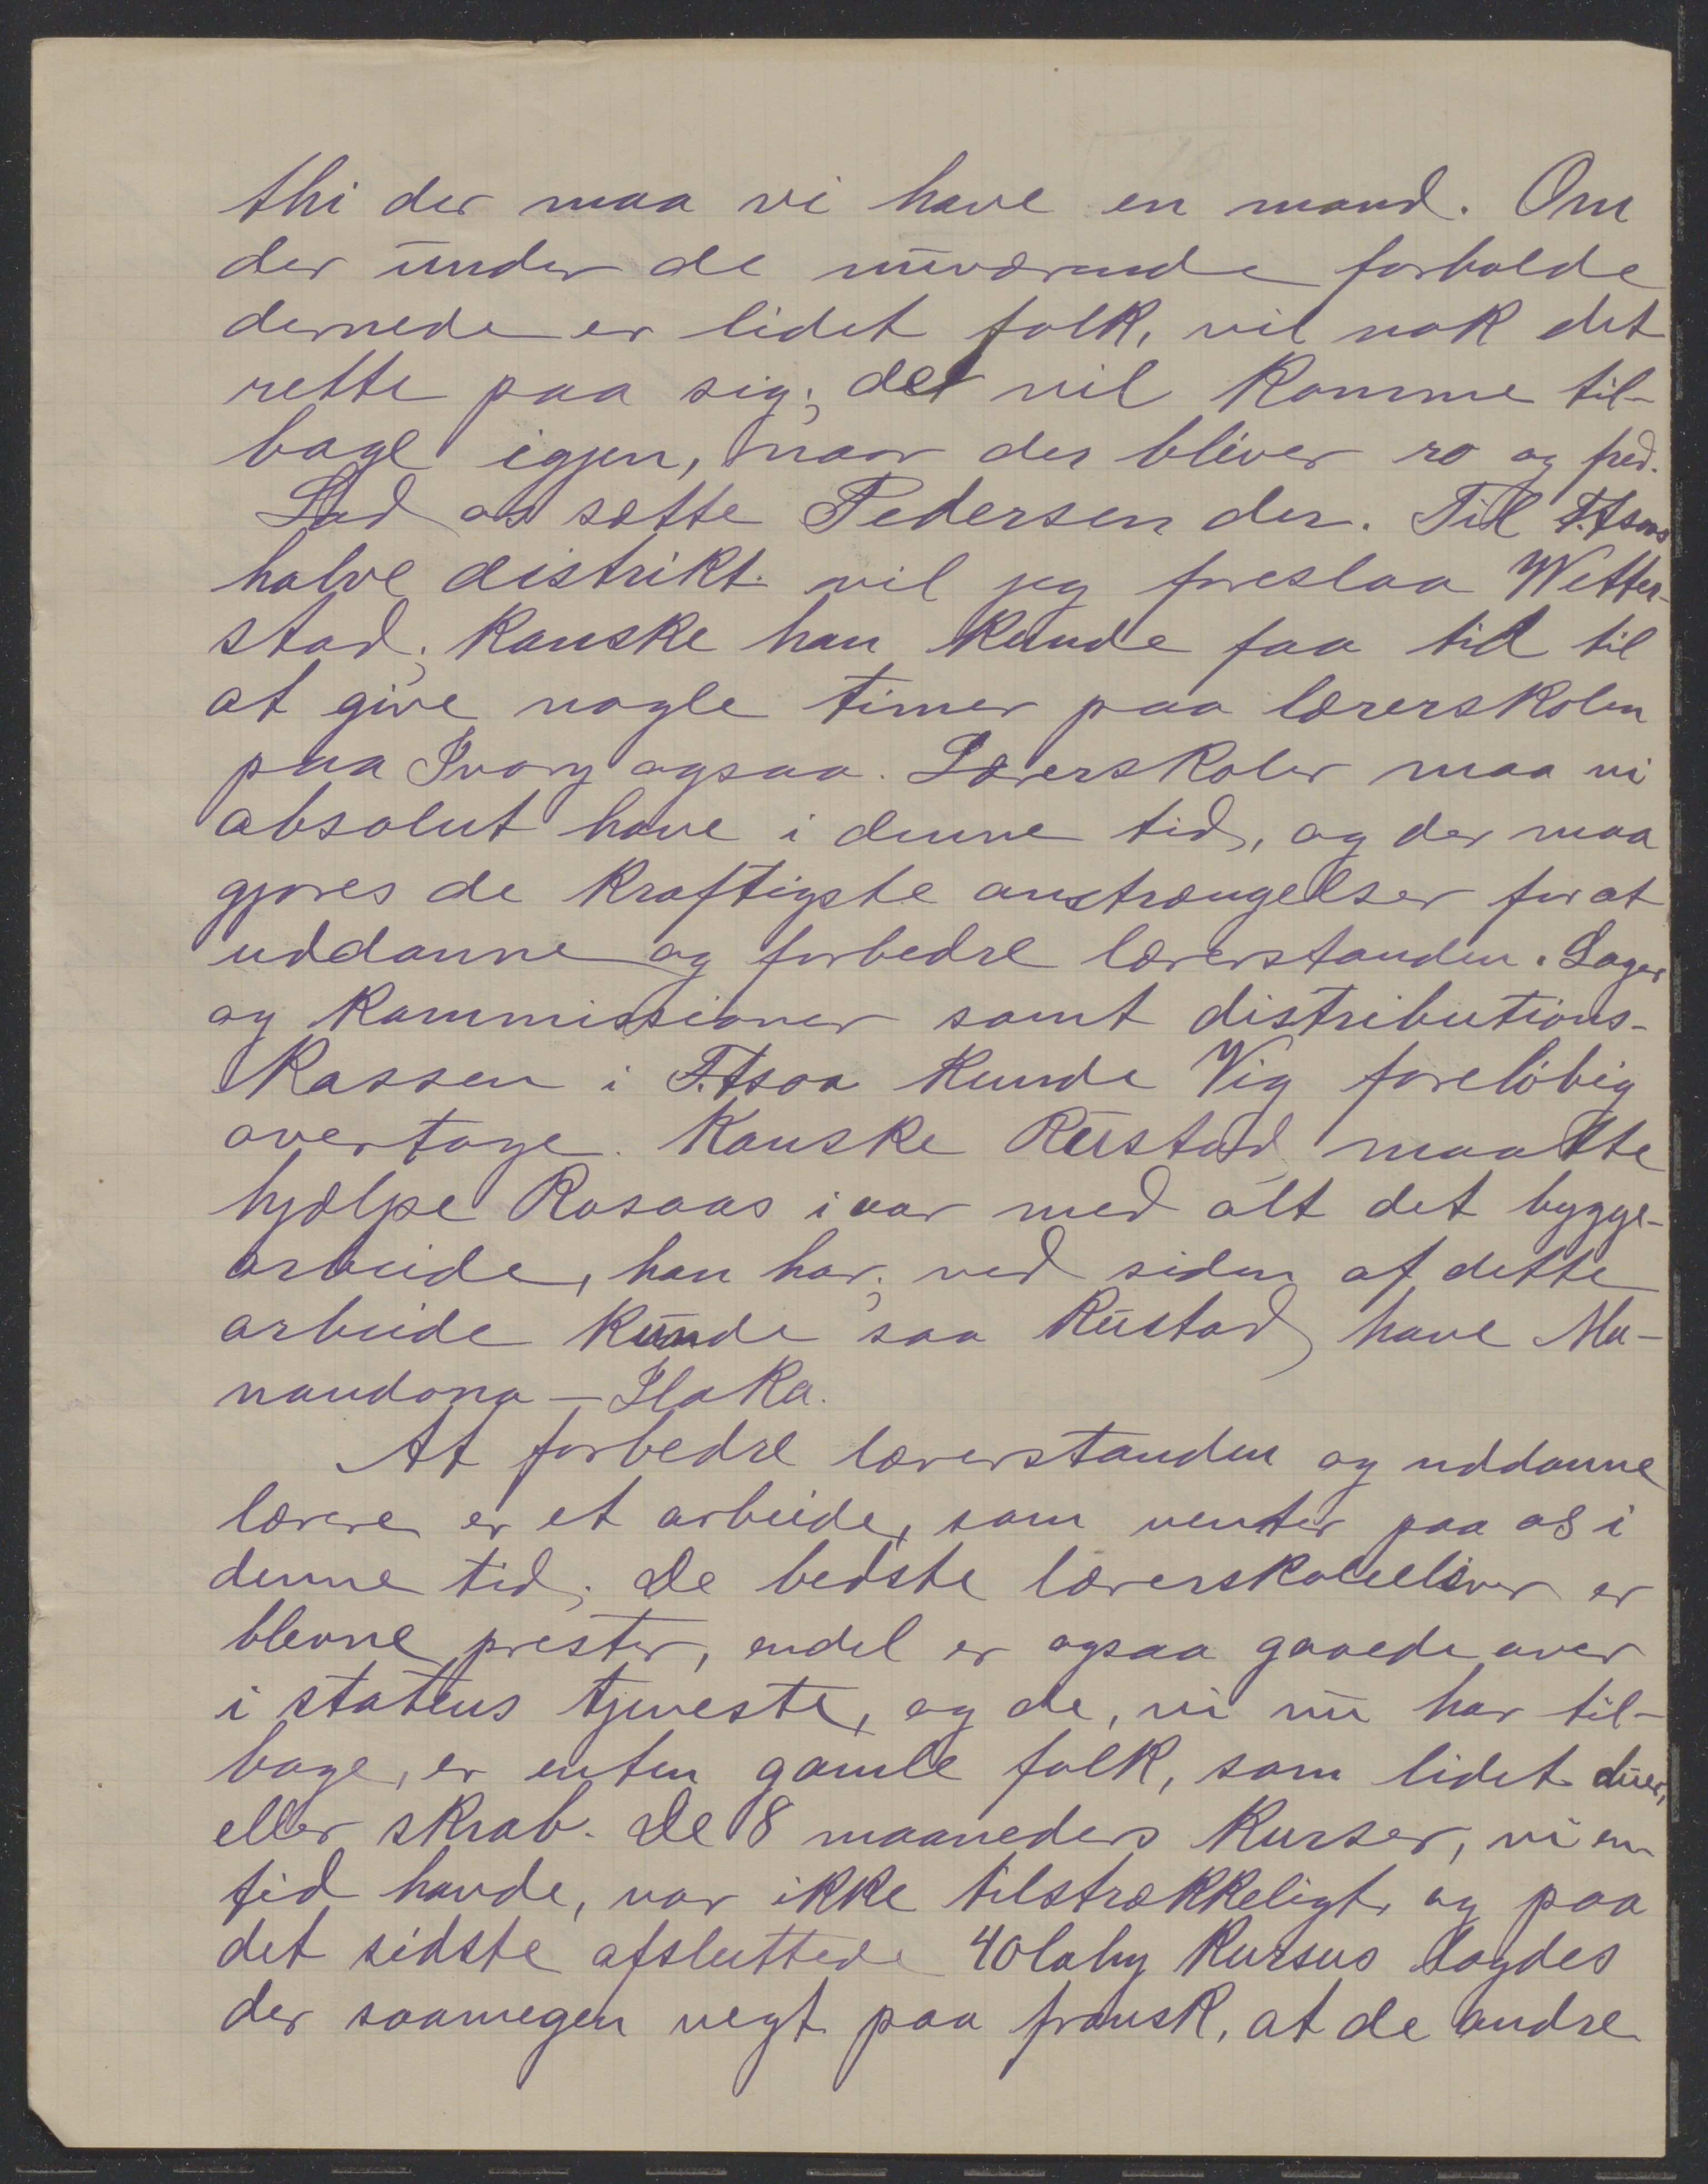 thi der maa vi have en mand. Om
der under de nuværende forholde
dernede er lidet folk, vil nok det
rette paa sig; det vil komme til-
bage igjen, naar der bliver ro og fred.
Lad os sætte Pedersen der. Til F.tsoas
halve distrikt vil jeg foreslaa Wetter-
stad; kanske han kunde faa tid til
at give nogle timer paa lærerskolen
paa Ivory ogsaa. Lærerskoler maa vi
absolut have i denne tid, og der maa
gjøres de kraftigste anstrængelser for at
uddanne og forbedre lærerstanden. Lager
og kommissioner samt distributions-
kassen i F.tsoa kunde Vig foreløbig
overtage. Kanske Rustad maatte
hjælpe Rosaas i aar med alt det bygge-
arbeide, han har; ved siden af dette
arbeide kunde saa Rustad have Ma-
nandona – Ilaka.
At forbedre lærerstanden og uddanne
lærere er et arbeide, som venter paa os i
denne tid; De bedste lærerskoleelever er
blevne prester, endel er ogsaa gaaede over
i statens tjeneste, og de, vi nu har til-
bage, er enten gamle folk, som lidet duer,
eller skrab. De 8 maaneders kurser, vi en
tid havde, var ikke tilstrækkeligt, og paa
det sidste afsluttede 40 lahy kursus lagdes
der saamegen vegt paa fransk, at de andre